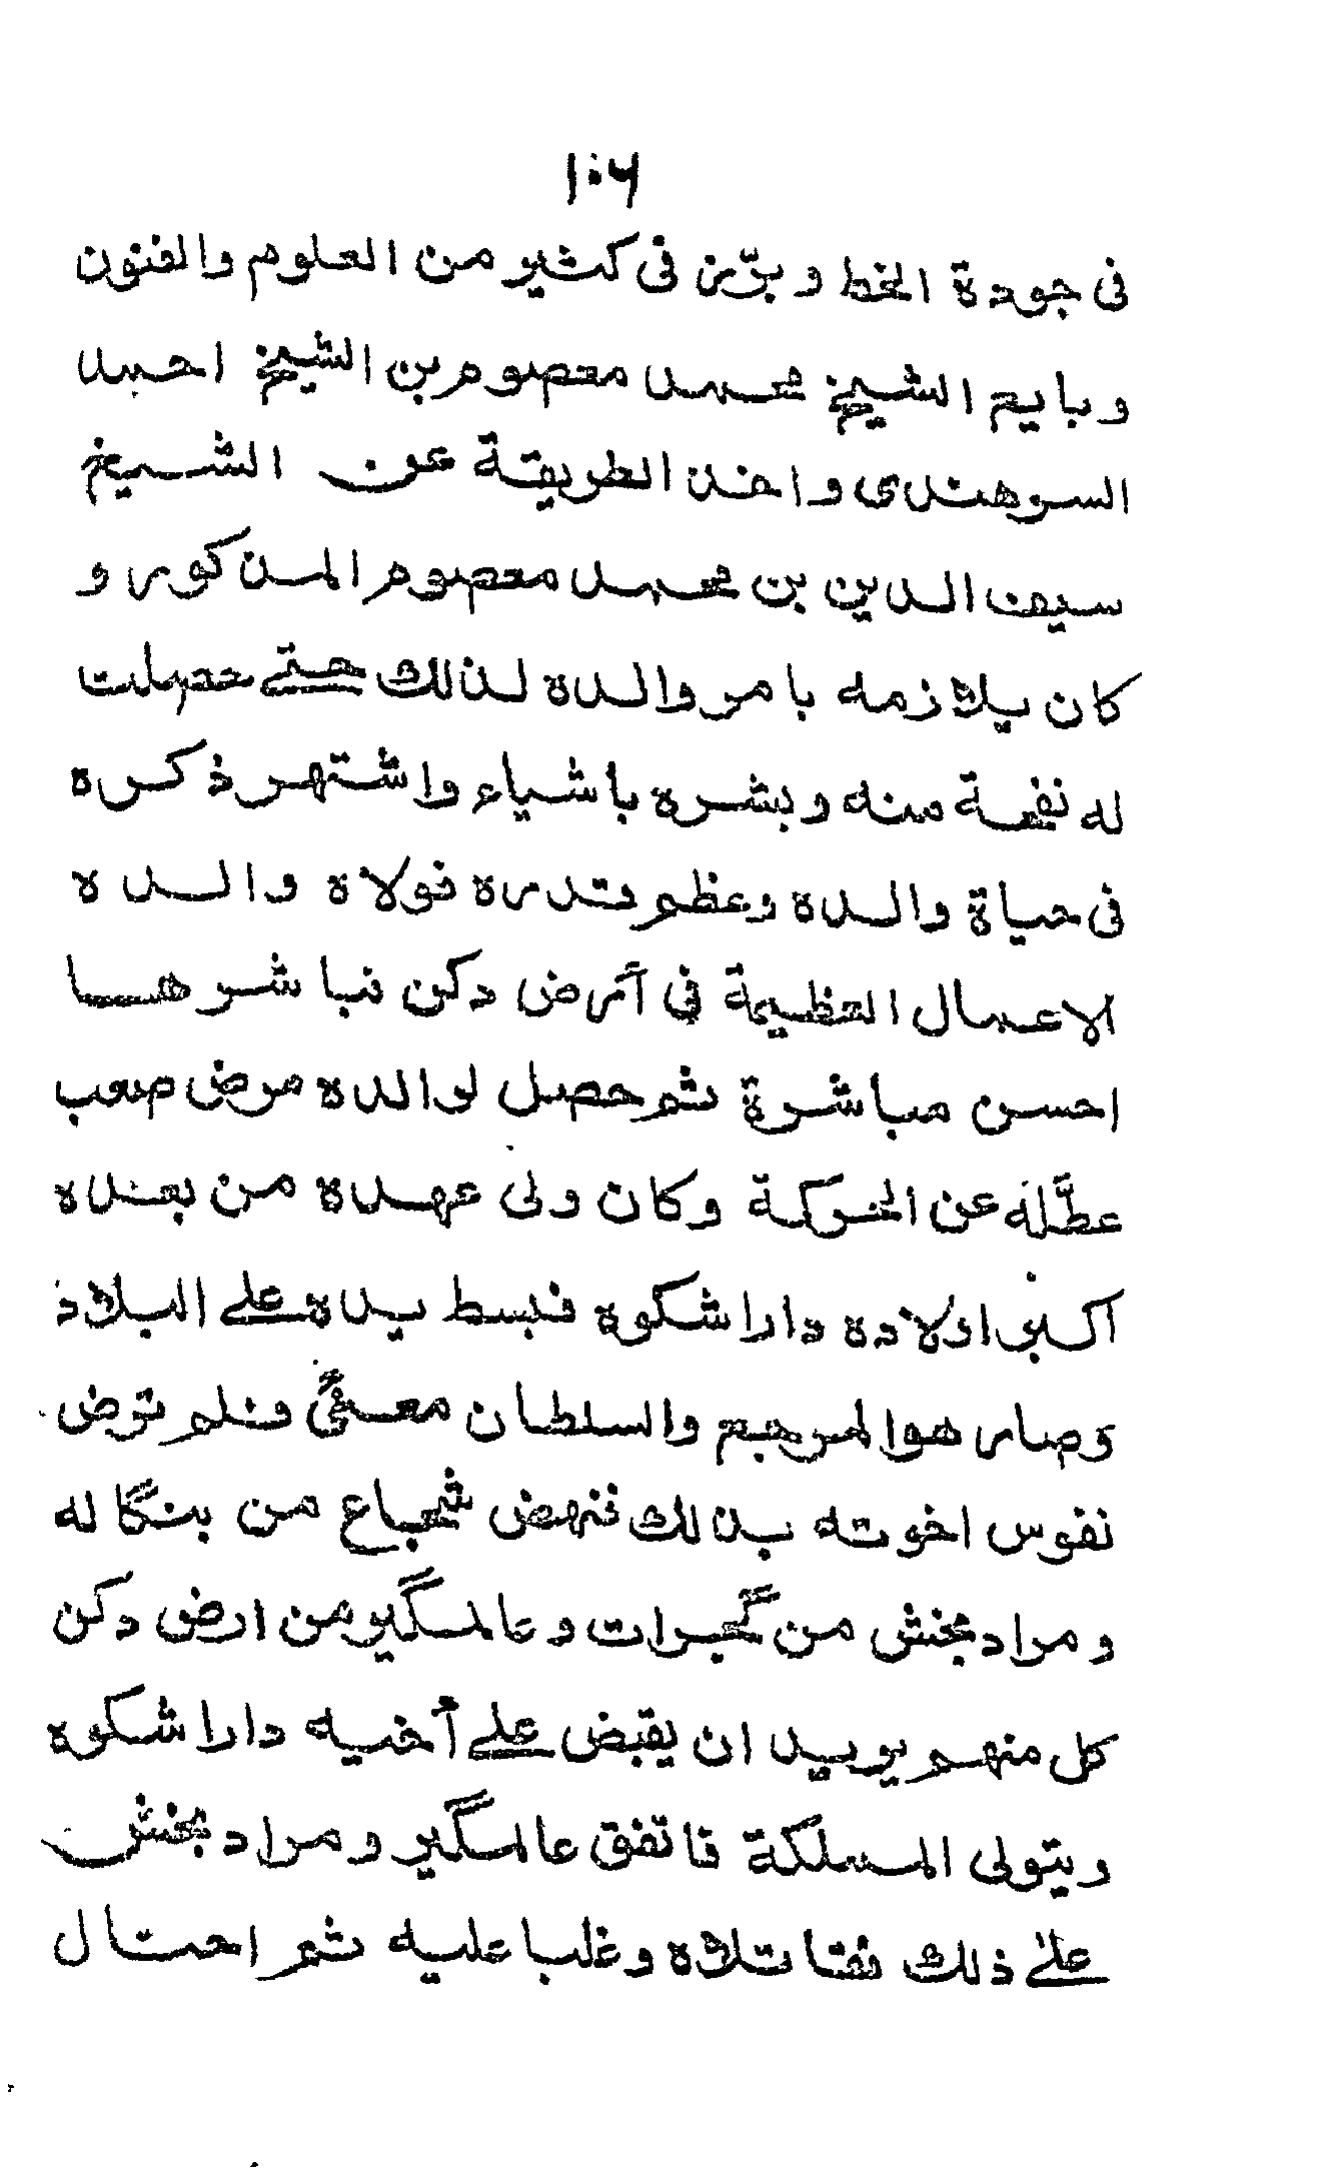 ١٠٦
فى جودة الخط وبرّز فى كثير من العلوم والفنون
وبايع الشيخ محمد معصوم بن الشيخ احمد
السرهندى واخذ الطريقة عن الشيخ
سيف الدين بن محمد معصوم المذكور و
كان يلازمه بامر والده لذلك حتے حصلت
له نفحة منه وبشره باشياء واشتهر ذكره
فى حياة والده وعظم قدره فولاه والده
الاعمال العظيمة في أرض دكن فباشرها
احسن مباشرة ثم حصل لوالده مرض صعب
عطَّله عن الحركة وكان ولى عهده من بعده
اكبر اولاده دارا شكوه فبسط يده علے البلاد
وصار هو المرجع والسلطان معنىً فلم ترض
نفوس اخوته بذلك فنهض شجاع من بنگاله
ومراد بخش من گجرات وعالمگير من ارض دكن
كل منهم يريد ان يقبض علے أخيه دارا شكوه
ويتولى المملكة فاتفق عالمگير ومراد بخش
علے ذلك فقاتلاه وغلبا عليه ثم احتال